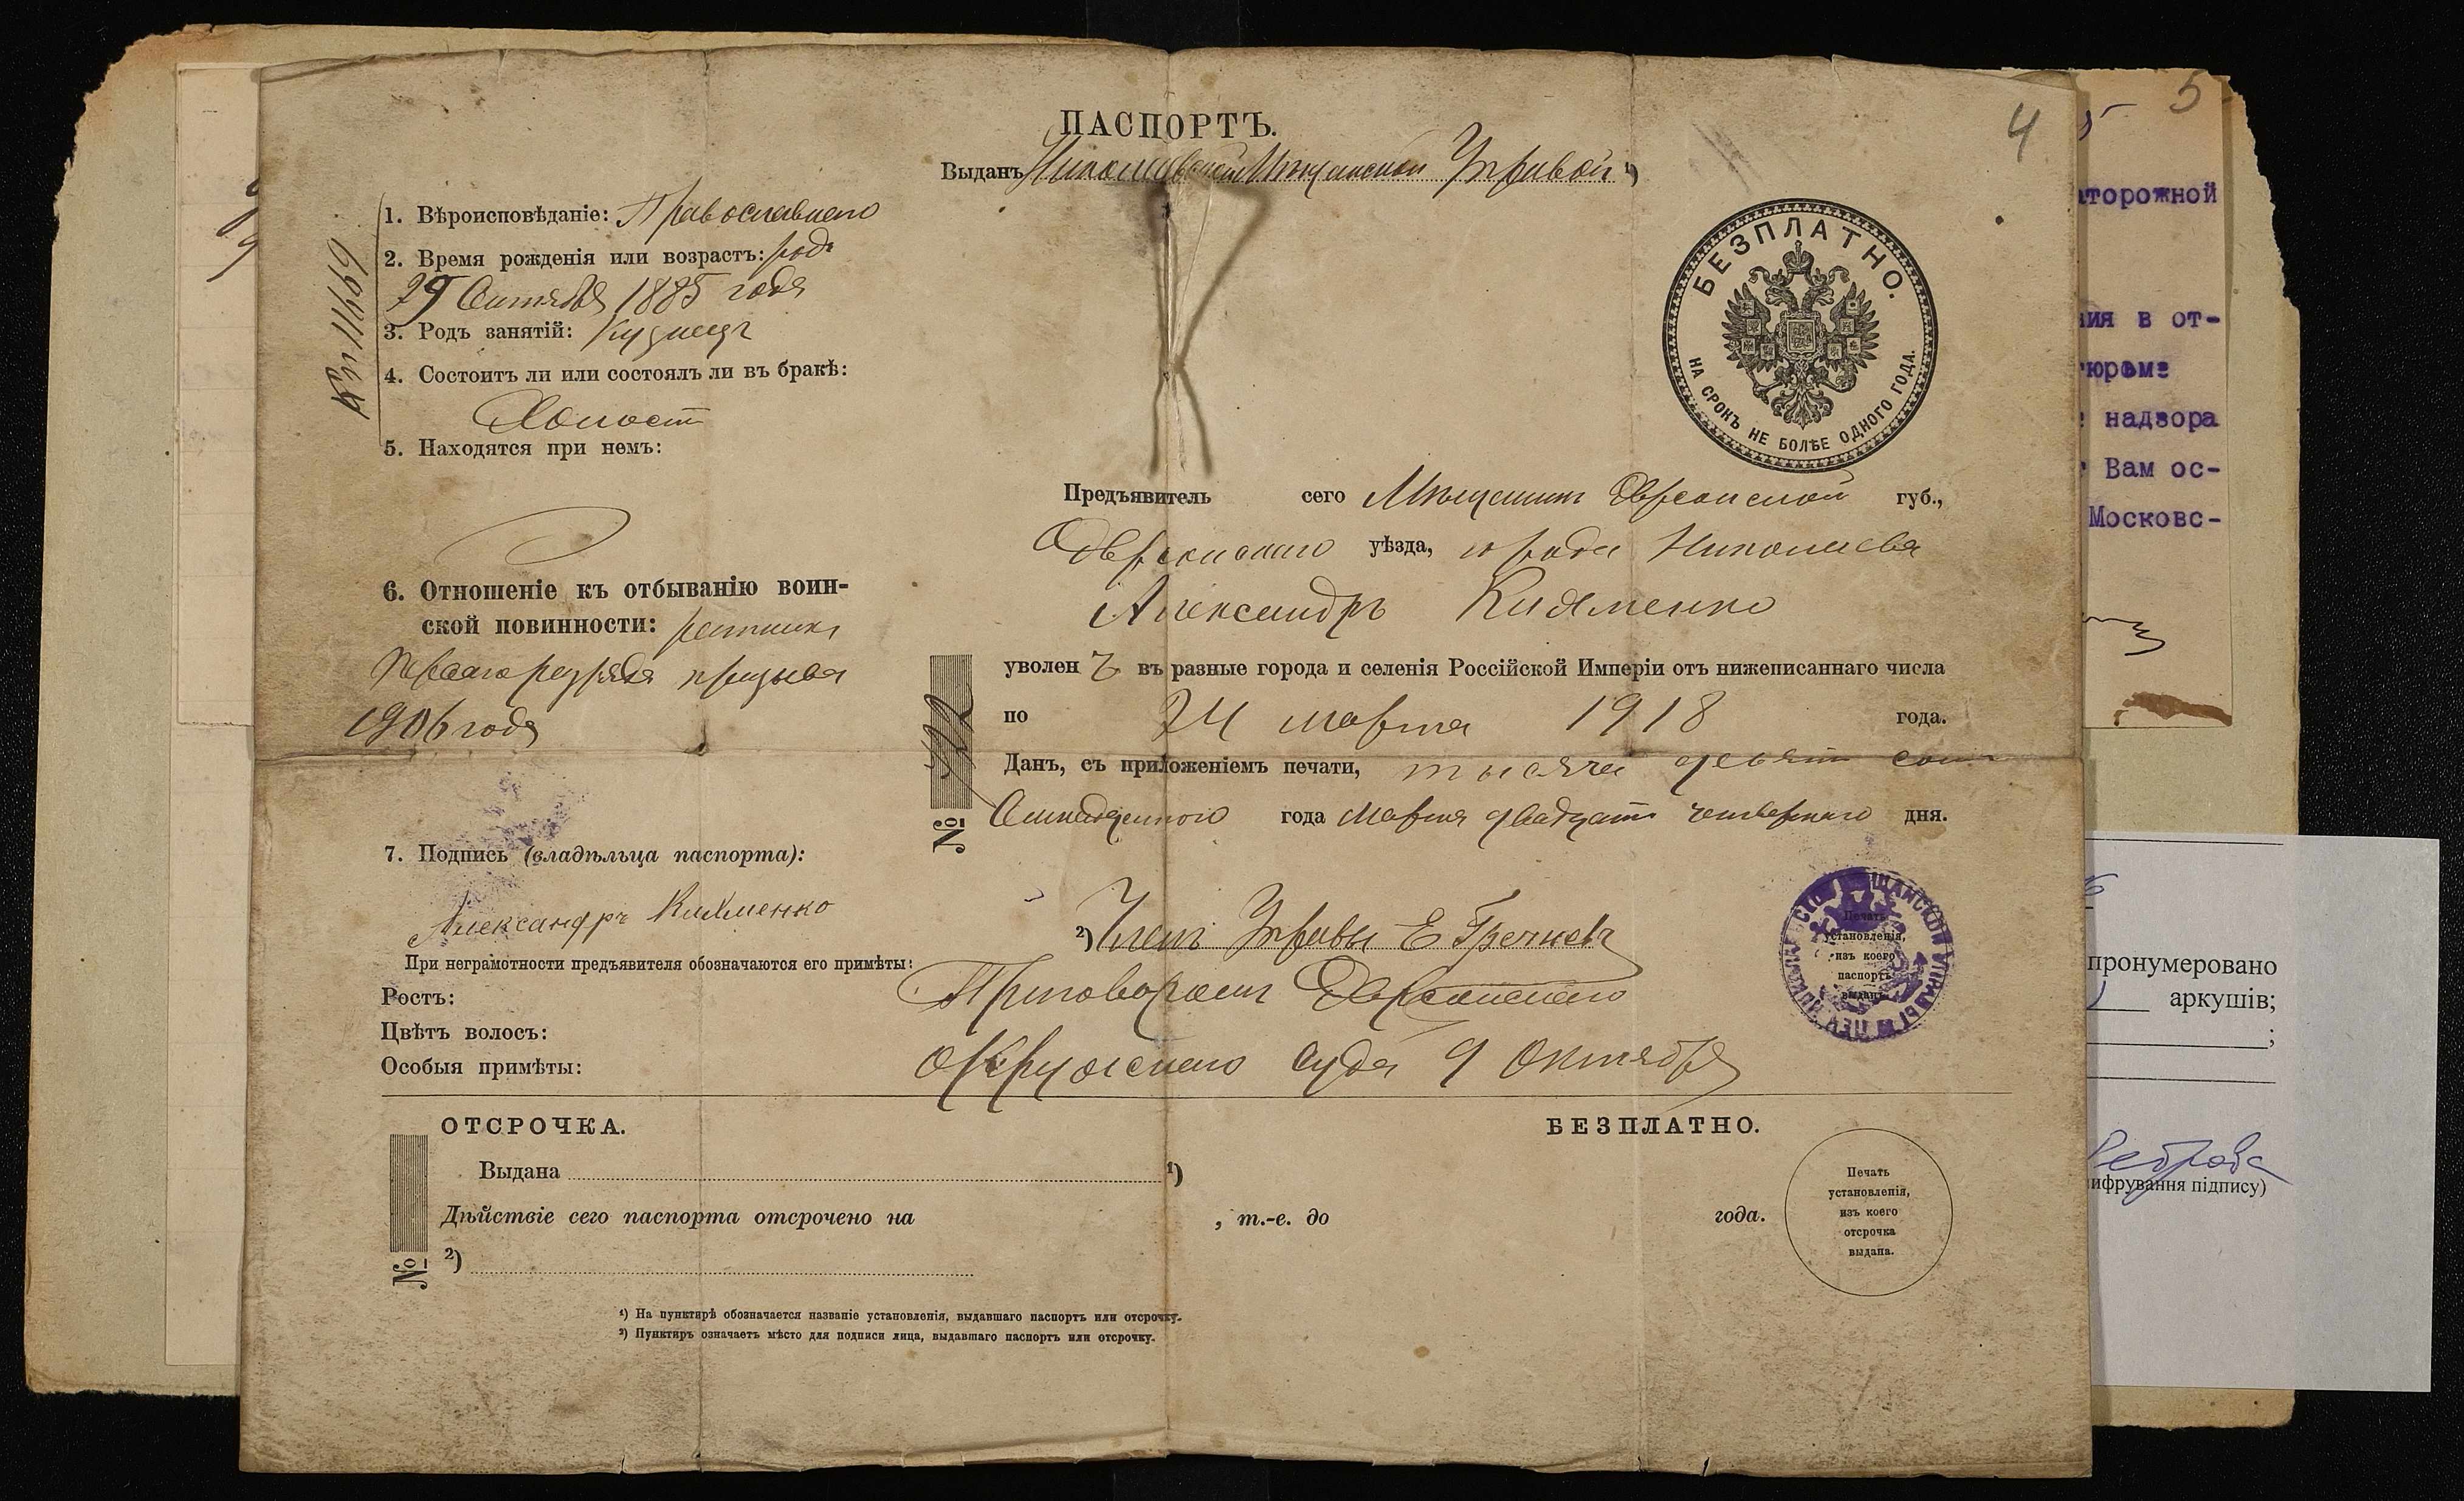 4
5
ПАСПОРТЪ.
Выданъ Николаевской Мѣщанской Управой ¹)
1. Вѣроисповѣданіе: Православнаго
2. Время рожденія или возрастъ: род.
29 Сентября 1885 года
3. Родъ занятій: Кузнецъ
4. Состоитъ ли или состоялъ ли въ бракѣ:
Холостъ
5. Находятся при немъ:
6. Отношеніе къ отбыванію воин-
ской повинности: ратникъ
перваго разряда призыва
1906 года
7. Подпись (владѣльца паспорта):
Александръ
При неграмотности предъявителя обозначаются его примѣты:
Ростъ:
Цвѣтъ волосъ:
Особыя примѣты:
БЕЗПЛАТНО.
НА СРОКЪ НЕ БОЛѢЕ ОДНОГО ГОДА.
Предъявитель сего Мѣщанинъ Херсонской губ.,
Херсонскаго уѣзда, города Николаева
Александръ
уволен ъ въ разные города и селенія Россійской Имперіи отъ нижеписаннаго числа
по 24 марта 1918 года.
Данъ, съ приложеніемъ печати, тысяча девятьсот
Семнадцатого года Марта двадцать четвертаго дня.
№
²) Членъ Управы Е
Приговоромъ Херсонскаго
Окружнаго Суда 9 Октября
Печать
установленія,
изъ коего
паспортъ
выданъ.
ОТСРОЧКА. БЕЗПЛАТНО.
Выдана ¹)
Дѣйствіе сего паспорта отсрочено на , т.-е. до года.
²)
№
Печать
установленія,
изъ коего
отсрочка
выдана.
¹) На пунктирѣ обозначается названіе установленія, выдавшаго паспортъ или отсрочку.
²) Пунктиръ означаетъ мѣсто для подписи лица, выдавшаго паспортъ или отсрочку.
аторожной
ния в от-
тюрьме
надзора
Вам ос-
Московс-
пронумеровано
аркушів;
;
ифрування підпису)